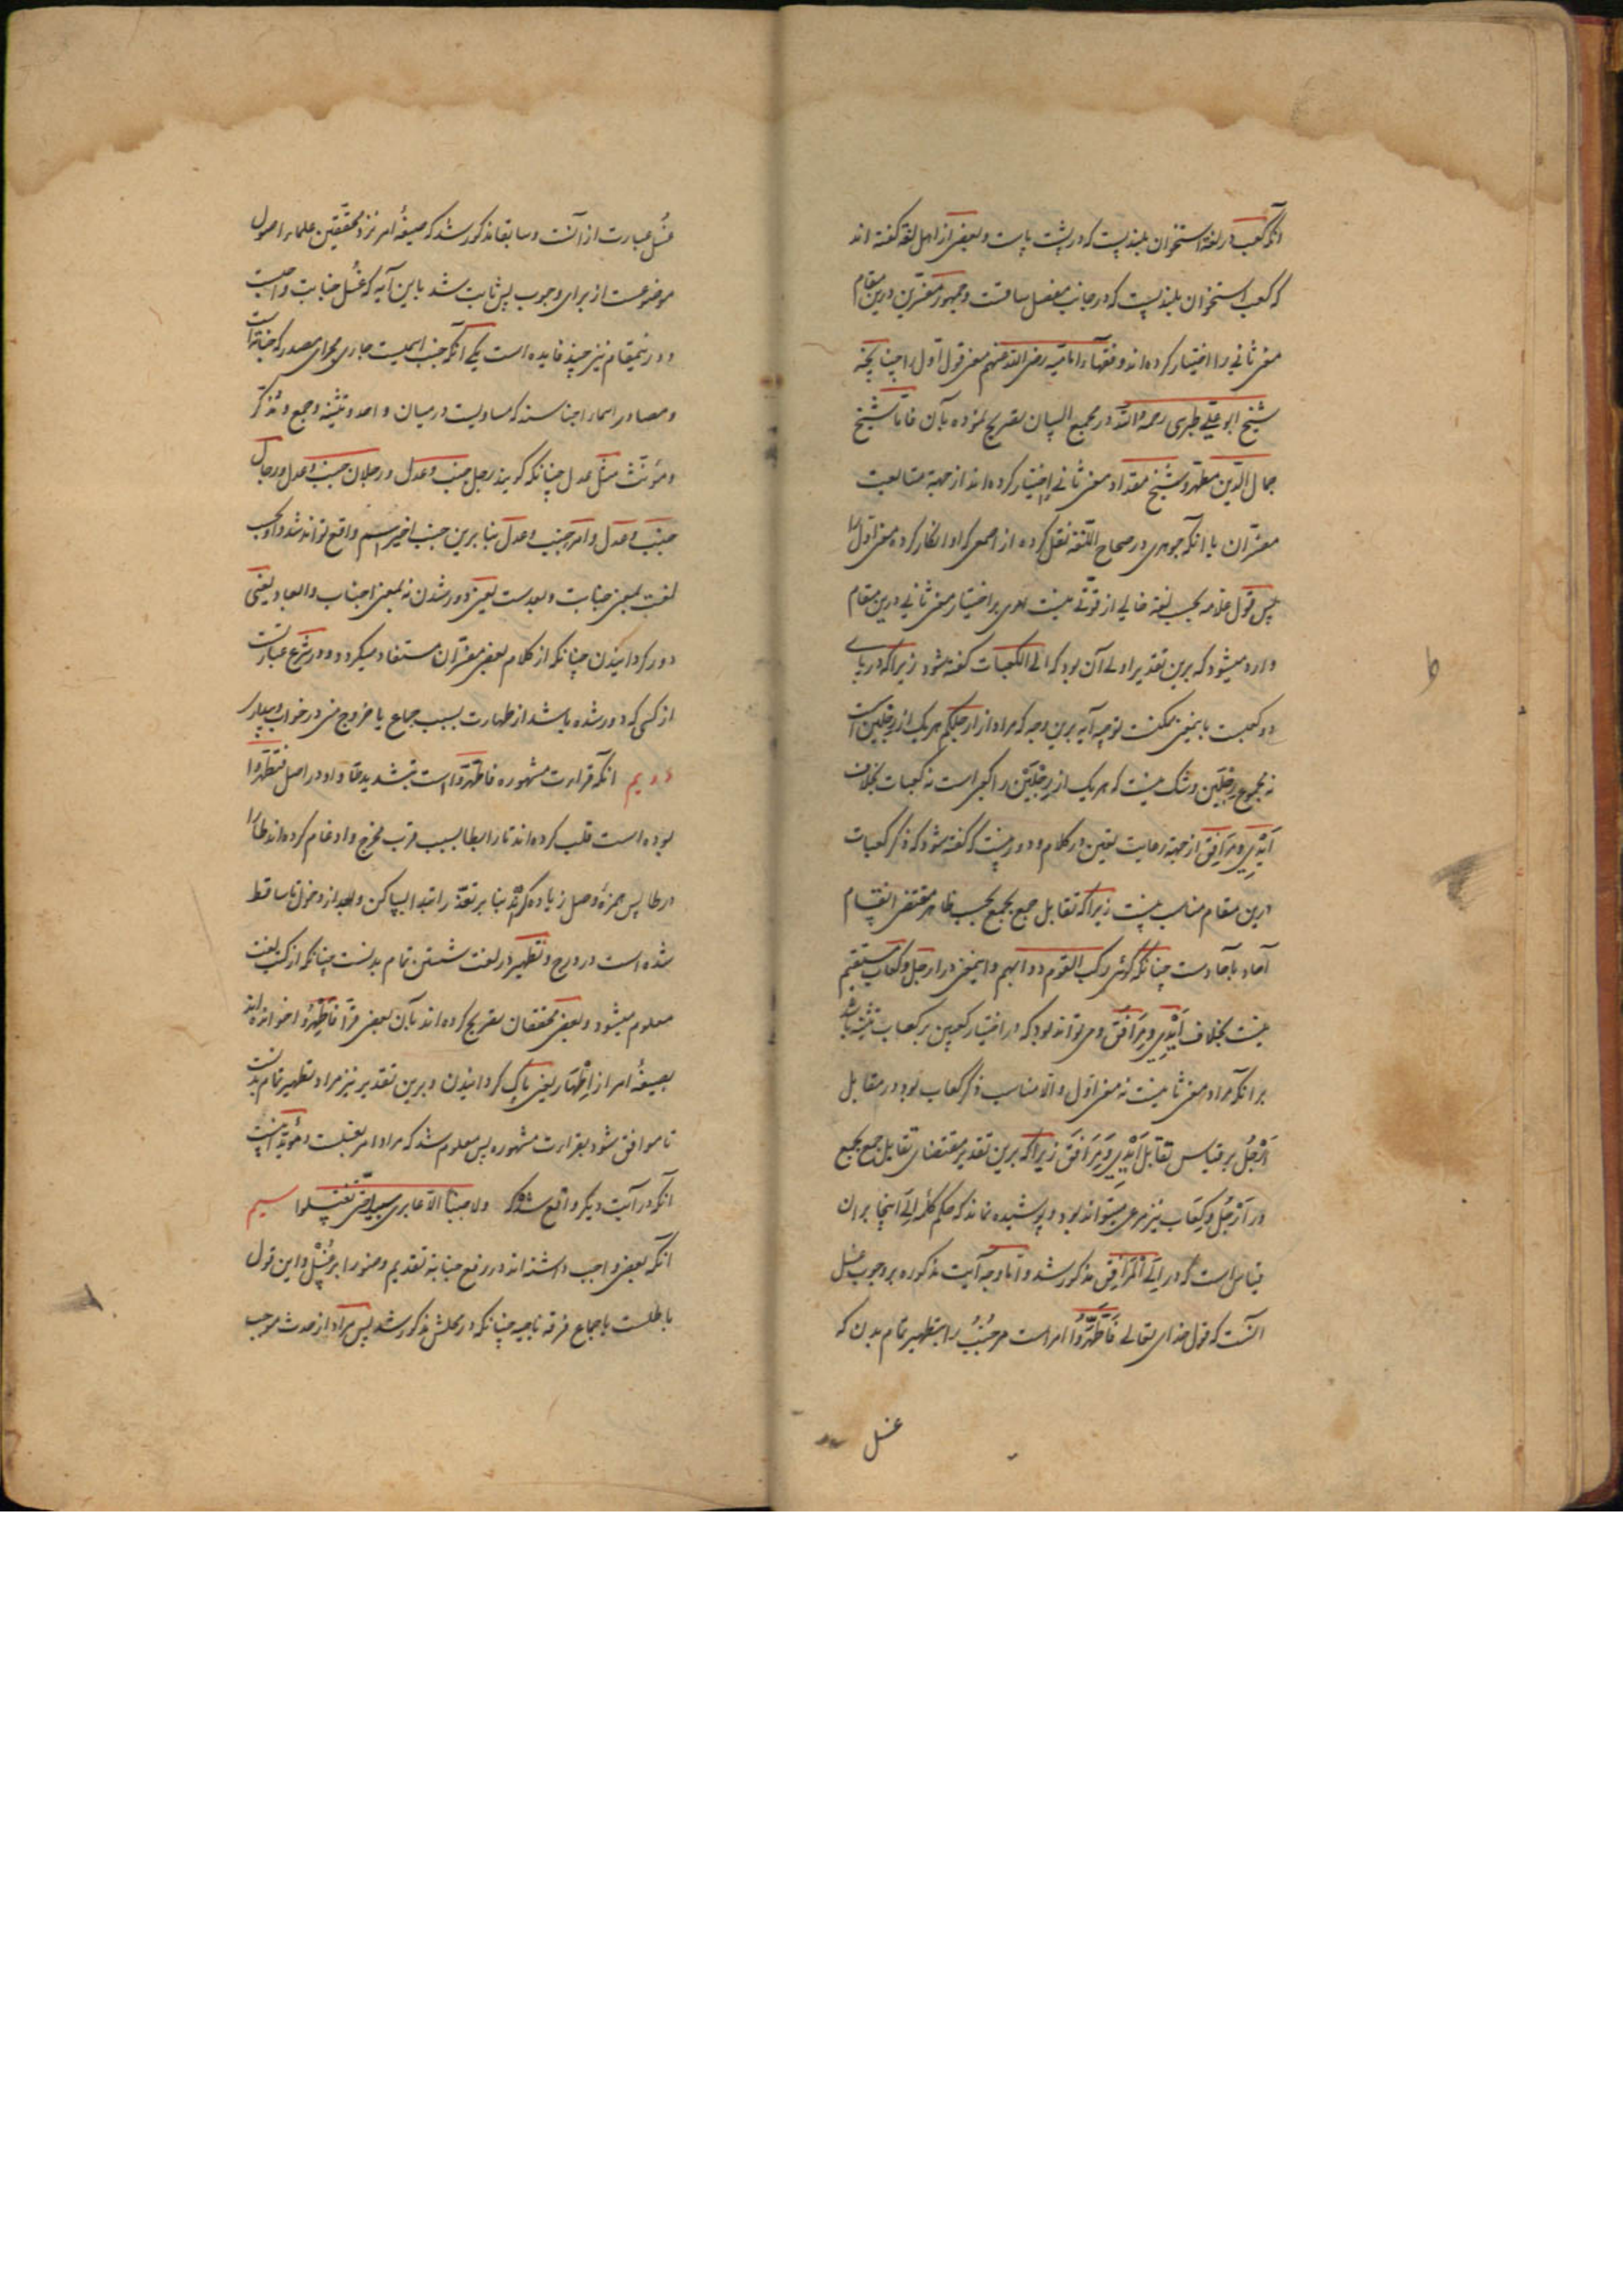 آنکه کعب در لغة استخوان بلندیست که در پشت پاست و بعضی از اهل لغة کفته اند
که کعب استخوان بلندیست که در جانب مفصل ساقست و جمهور مفسّرین درین مقام
معنی ثانی را اختیار کرده اند و فقهاء امامیّه رضی الله عنهم معنی قول اوّل را چنانچه
شیخ ابو علی طبرسی رحمه الله در مجمع البیان تصریح نموده بآن فامّا شیخ
جمال الدّین مطهّر و شیخ مقداد معنی ثانی اختیار کرده اند از جهة متابعت
مفسّران با آنکه جوهری در صحاح اللّغة نقل کرده از اصمعی که او انکار کرده معنی اوّل را
پس قول علّامه بحسب لغة خالی از قوّتی نیست بلی بر اختیار معنی ثانی درین مقام
وارد میشود که برین تقدیر اولی آن بود که الی الکعبات کفته شود زیرا که در پای
دو کعبست باینمعنی ممکنست توجیه آیه برین وجه که مراد از ارجلکم هر یک از رِجلَین است
نه مجموع رِجلَین و شک نیست که هر یک از رِجْلَیْن را کعبین است نه کعبات بخلاف
اَیْدِی و مَرَافِق از جهة رعایت تعین در کلام و دور نیست که کفته شود که ذکر کعبات
درین مقام مناسب نیست زیرا که تقابل جمع بجمع بحسب ظاهر مقتضی انقسام
آحاد بآحادست چنانکه کوئی رکب القوم دوابهم و اینمعنی در ارجل و کعاب مستقیم
نیست بخلاف اَیْدِی و مَرَافِق و می تواند بود که در اختیار کعبین بر کعاب تنبیه باشد
بر آنکه مراد معنی ثانیست نه معنی اوّل و الّا مناسب ذکر کعاب بود در مقابل
اَرْجُل بر قیاس تقابل اَیْدِی و مَرَافِق زیرا که برین تقدیر مقتضای تقابل جمع بجمع
در اَرْجُل و کِعَاب نیز مرعی میتواند بود و پوشیده نماند که حکم کلمۀ اِلَی اینجا بر آن
قیاس است که در اِلَی الْمَرَافِقِ مذکور شد و امّا وجه آیت مذکوره بر وجوب غسل
آنست که قول خدای تعالی فَاطَّهَّرُوا امر است مر جُنُبْ را بتطهیر تمام بدن که
غسل
غُسل عبارت از آنست و سابقا مذکور شد که صیغۀ امر نزد محقّقین علماء اصول
موضوعست از برای وجوب پس ثابت شد باین آیه که غُسل جنابت واجبست
و درینمقام نیز چند فایده است یکی آنکه جنب اسمیست جاری مجرای مصدر که جنابة است
و مصادر اسماء اجناسند که مساویست در میان واحد و تثنیه و جمع و مذکّر
و مؤنّث مثل عدل چنانکه کویند رجل جنب و عدل و رجلان جنب و عدل و رجال
جنب و عدل و امرءة جنب و عدل بنا برین جنب اخیر اسم واقع تواند شد و او بحسب
لغت بمعنی جنابت و بعدست یعنی دور شدن نه بمعنی اجناب و ابعاد یعنی
دور کردانیدن چنانکه از کلام بعضی مفسّران مستفاد میکردد و در شرع عبارتست
از کسی که دور شده باشد از طهارت بسبب جماع یا خروج منی در خواب و بیداری
دویم آنکه قراءت مشهوره فاطّهّروا است بتشدید طا و ها و در اصل فتطهّروا
بوده است قلب کرده اند تا را بطا بسبب قرب مخرج و ادغام کرده اند طا را
در طا پس همزۀ وصل زیاده کرده شد بنا بر تعذّر ابتدا بساکن و بعد از دخول فا ساقط
شده است در درج و تطهیر در لغت شستن تمام بدنست چنانکه از کتب لغت
معلوم میشود و بعضی محققان تصریح کرده اند بآن و بعضی قرّا فَاَطْهِرُوا خوانده اند
بصیغۀ امر از اِطْهَار یعنی پاک کردانیدن و برین تقدیر نیز مراد تطهیر تمام بدنست
تا موافق شود بقراءت مشهوره پس معلوم شد که مراد امر بغسلست و مؤیّد اینست
آنکه در آیت دیکر واقع شده که ولا جنبًا الّا عابری سبیل حتّی تغتسلوا سیم
آنکه بعضی واجب داشته اند در رفع جنابة تقدیم وضو را بر غُسْل و این قول
باطلست باجماع فرقه ناجیه چنانکه در محلش مذکور شد پس مراد از حدث موجب